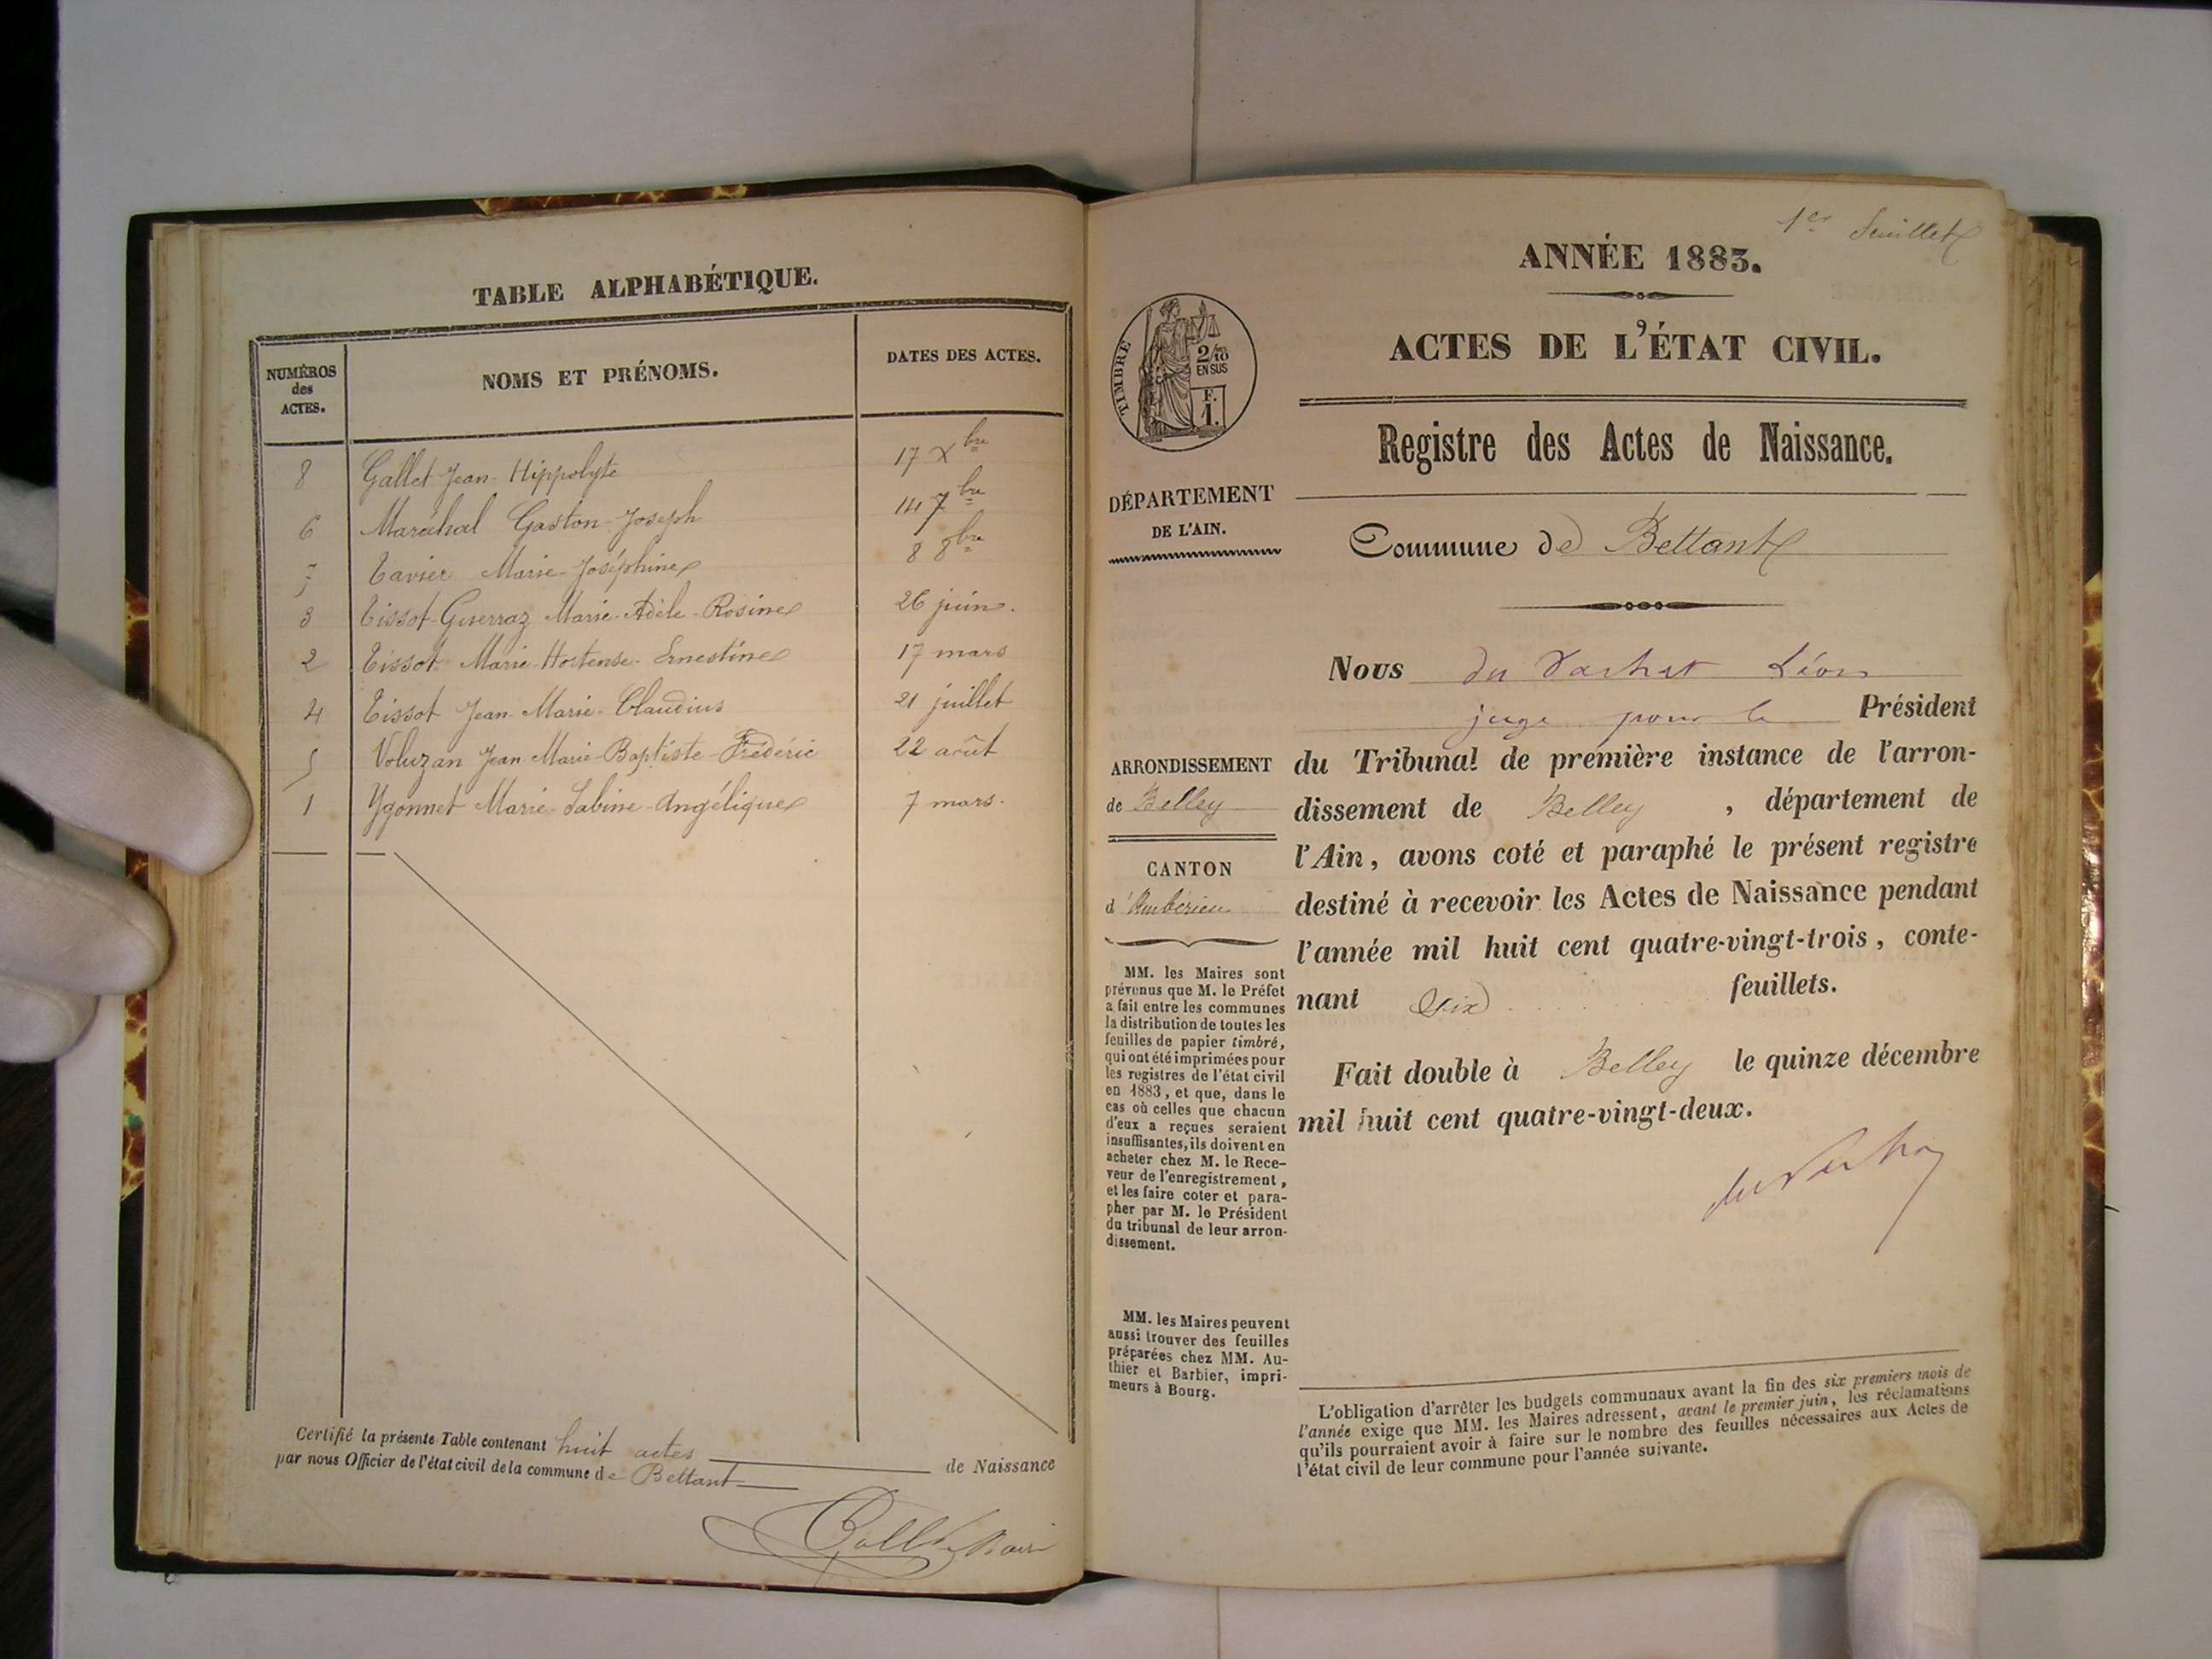 TABLE ALPHABÉTIQUE.
NUMÉROS des ACTES.
NOMS ET PRÉNOMS.
DATES DES ACTES.
8 Gallet Jean-Hippolyte 17 Xbre
6 Maréchal Gaston-Joseph 14 7bre
7 Tavier Marie-Joséphine 8 8bre
3 Tissot-Guerraz Marie-Adèle-Rosine 26 juin.
2 Tissot Marie-Hortense-Ernestine 17 mars
4 Tissot Jean-Marie-Claudius 21 juillet
5 Voluzan Jean-Marie-Baptiste-Frédéric 22 août
1 Ygonnet Marie-Sabine-Angélique 7 mars.
Certifié la présente Table contenant huit actes de Naissance
par nous Officier de l'état civil de la commune de Bettant
1er feuillet
ANNÉE 1883.
ACTES DE L'ÉTAT CIVIL.
Registre des Actes de Naissance.
TIMBRE
2/10
EN SUS
F.
1.
DÉPARTEMENT
DE L'AIN.
Commune de Bettant
Nous du Vachat Léon
juge pour le Président
du Tribunal de première instance de l'arron-
dissement de Belley, département de
l'Ain, avons coté et paraphé le présent registre
destiné à recevoir les Actes de Naissance pendant
l'année mil huit cent quatre-vingt-trois, conte-
nant six feuillets.
Fait double à Belley le quinze décembre
mil huit cent quatre-vingt-deux.
ARRONDISSEMENT
de Belley
CANTON
d'Ambérieu
MM. les Maires sont
prévenus que M. le Préfet
a fait entre les communes
la distribution de toutes les
feuilles de papier timbré,
qui ont été imprimées pour
les registres de l'état civil
en 1883, et que, dans le
cas où celles que chacun
d'eux a reçues seraient
insuffisantes, ils doivent en
acheter chez M. le Rece-
veur de l'enregistrement,
et les faire coter et para-
pher par M. le Président
du tribunal de leur arron-
dissement.
MM. les Maires peuvent
aussi trouver des feuilles
préparées chez MM. Au-
thier et Barbier, impri-
meurs à Bourg.
L'obligation d'arrêter les budgets communaux avant la fin des six premiers mois de
l'année exige que MM. les Maires adressent, avant le premier juin, les réclamations
qu'ils pourraient avoir à faire sur le nombre des feuilles nécessaires aux Actes de
l'état civil de leur commune pour l'année suivante.